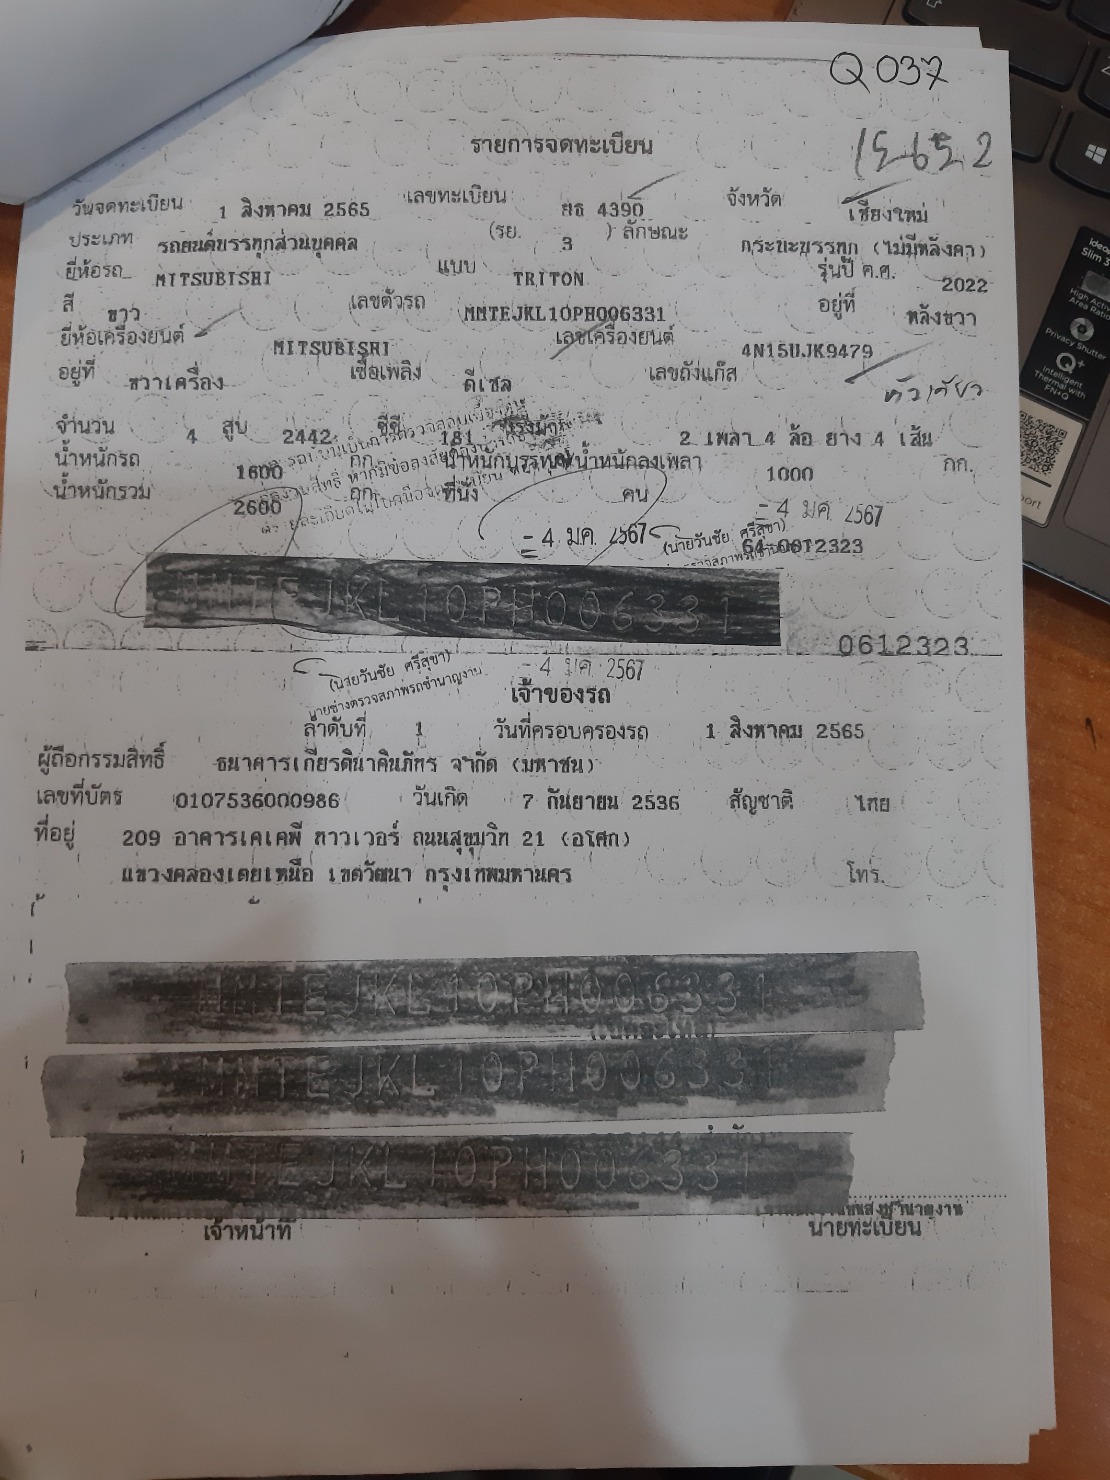 Q 037
รายการจดทะเบียน
วันจดทะเบียน 1 สิงหาคม 2565 เลขทะเบียน ผธ 4390 จังหวัด เชียงใหม่
ประเภท รถยนต์บรรทุกส่วนบุคคล (รย. 3 ) ลักษณะ กระบะบรรทุก (ไม่มีหลังคา)
ยี่ห้อรถ MITSUBISHI แบบ TRITON รุ่นปี ค.ศ. 2022
สี ขาว เลขตัวรถ MMTEJKL10PH006331 อยู่ที่ หลังขวา
ยี่ห้อเครื่องยนต์ MITSUBISHI เลขเครื่องยนต์ 4N15UJK9479
อยู่ที่ ขวาเครื่อง เชื้อเพลิง ดีเซล เลขถังแก๊ส
หัวเขียว
จำนวน 4 สูบ 2442 ซีซี 181 แรงม้า 2 เพลา 4 ล้อ ยาง 4 เส้น
น้ำหนักรถ 1600 กก. น้ำหนักบรรทุก/น้ำหนักลงเพลา 1000 กก.
น้ำหนักรวม 2600 กก. ที่นั่ง คน
- 4 มค. 2567
- 4 มค. 2567
(นายวันชัย ศรีสุขา)
64-0612323
MMTEJKL10PH006331
0612323
(นายวันชัย ศรีสุขา)
นายช่างตรวจสภาพรถชำนาญงาน
- 4 มค 2567
เจ้าของรถ
ลำดับที่ 1 วันที่ครอบครองรถ 1 สิงหาคม 2565
ผู้ถือกรรมสิทธิ์ ธนาคารเกียรตินาคินภัทร จำกัด (มหาชน)
เลขที่บัตร 0107536000986 วันเกิด 7 กันยายน 2536 สัญชาติ ไทย
ที่อยู่ 209 อาคารเคเคพี ทาวเวอร์ ถนนสุขุมวิท 21 (อโศก)
แขวงคลองเตยเหนือ เขตวัฒนา กรุงเทพมหานคร โทร.
MMTEJKL10PH006331
MMTEJKL10PH006331
MMTEJKL10PH006331
เจ้าหน้าที่ นายทะเบียน